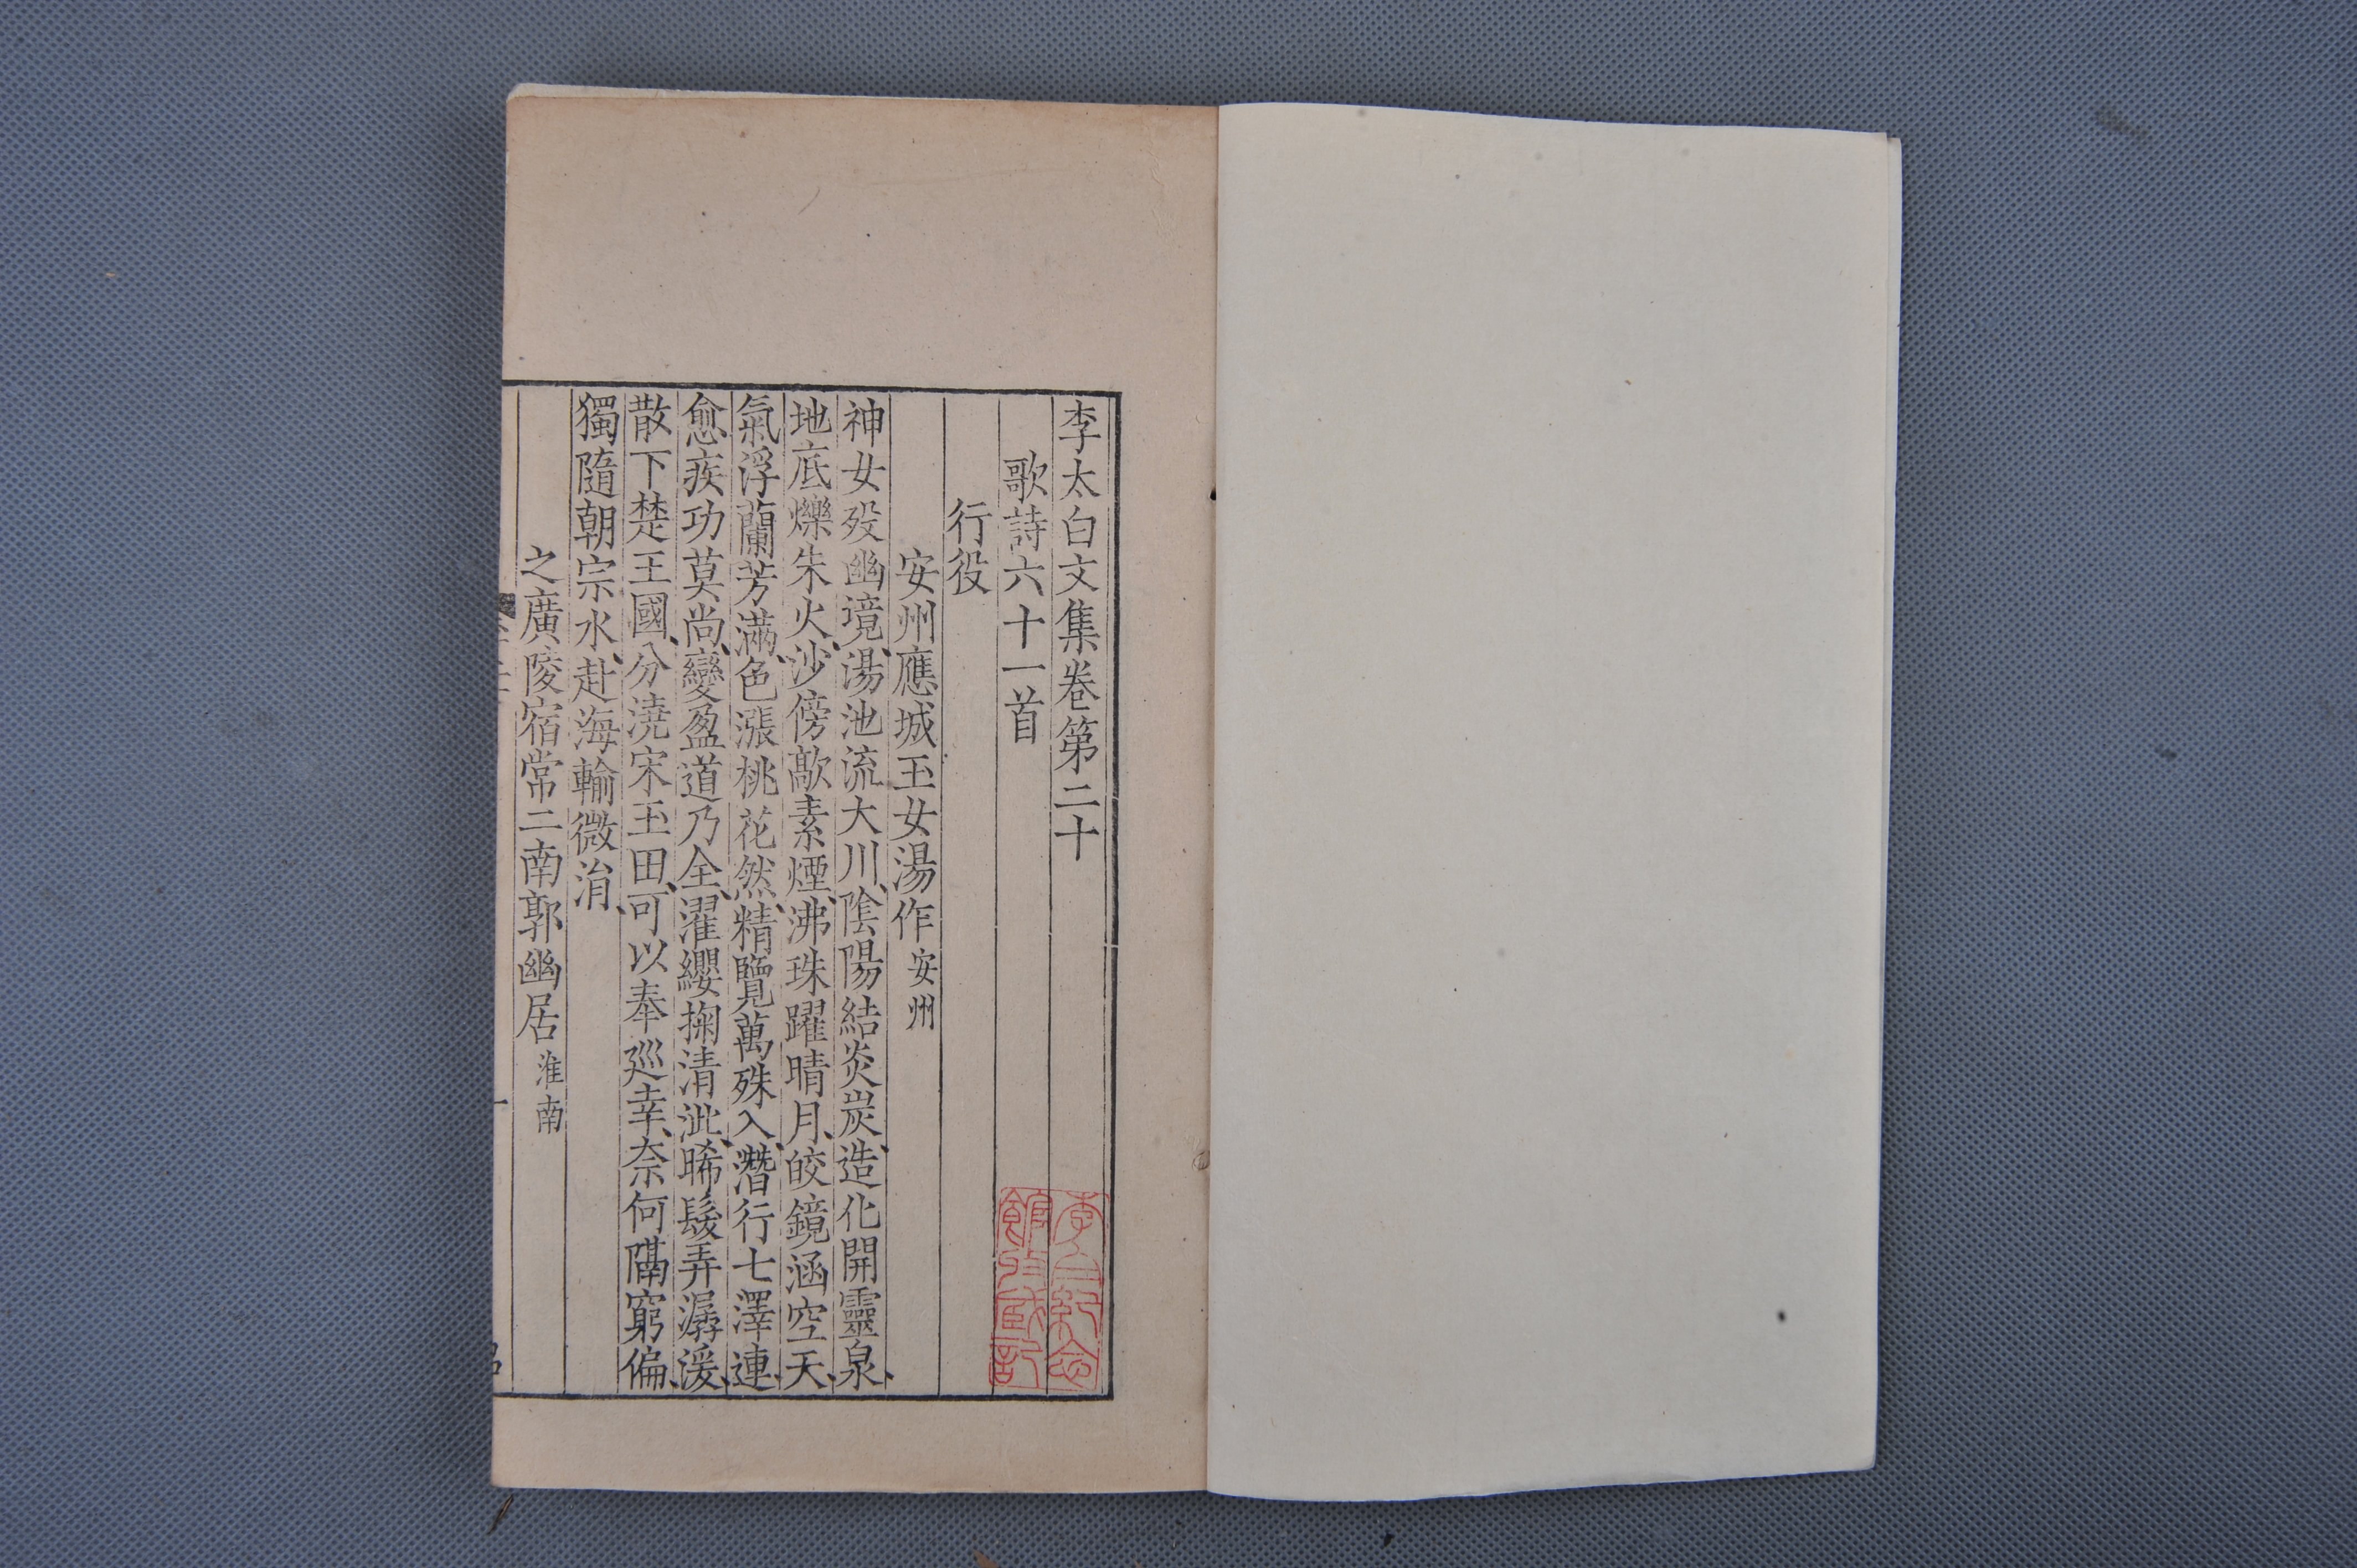 李太白文集卷第二十
歌詩六十一首
行役
安州應城玉女湯作安州
神女歿幽境、湯池流大川、陰陽結炎炭、造化開靈泉、
地底爍朱火、沙傍歊素煙、沸珠躍晴月、皎鏡涵空天、
氣浮蘭芳滿、色漲桃花然、精覽萬殊入、潛行七澤連、
愈疾功莫尚、變盈道乃全、濯纓掬清泚、晞髮弄潺湲、
散下楚王國、分澆宋玉田、可以奉巡幸、柰何隔窮偏、
獨隨朝宗水、赴海輸微涓、
之廣陵宿常二南郭幽居淮南
一
李白紀念
館收藏記